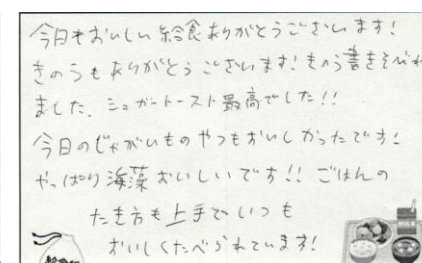 今日もおいしい給食ありがとうございます!
きのうもありがとうございます!きのう書きそびれ
ました.シュガートースト最高でした!!
今日のじゃがいものやつもおいしかったです!
やっぱり海藻おいしいです!!ごはんの
たき方も上手でいつも
おいしくたべられています!
MILK